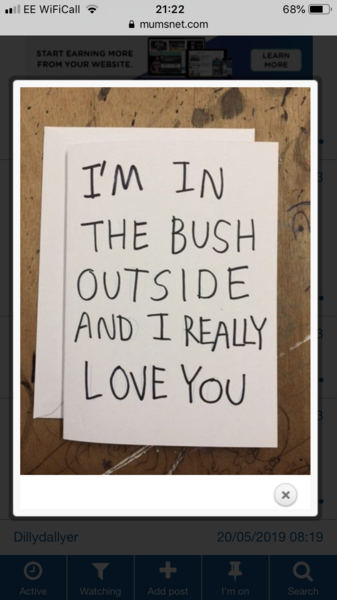 EE WiFiCall
21:22
68%
mumsnet.com
START EARNING MORE
FROM YOUR WEBSITE.
LEARN
MORE
I'M IN
THE BUSH
OUTSIDE
AND I REALLY
LOVE YOU
Dillydallyer
20/05/2019 08:19
Active
Watching
Add post
I'm on
Search